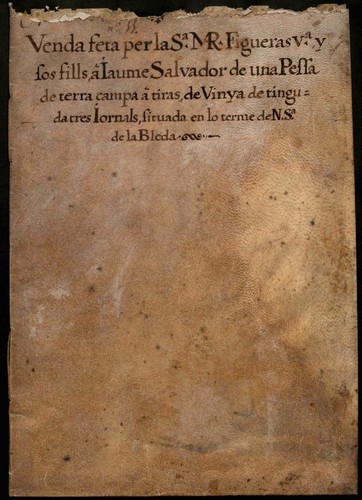 Venda feta per la S.ª M.R. Figueras V.ª y
sos fills, â Iaume Salvador de una Pessa
de terra campa â tiras, de Vinya de tingu=
da tres Iornals, situada en lo terme de N. S.ª
de la Bleda.